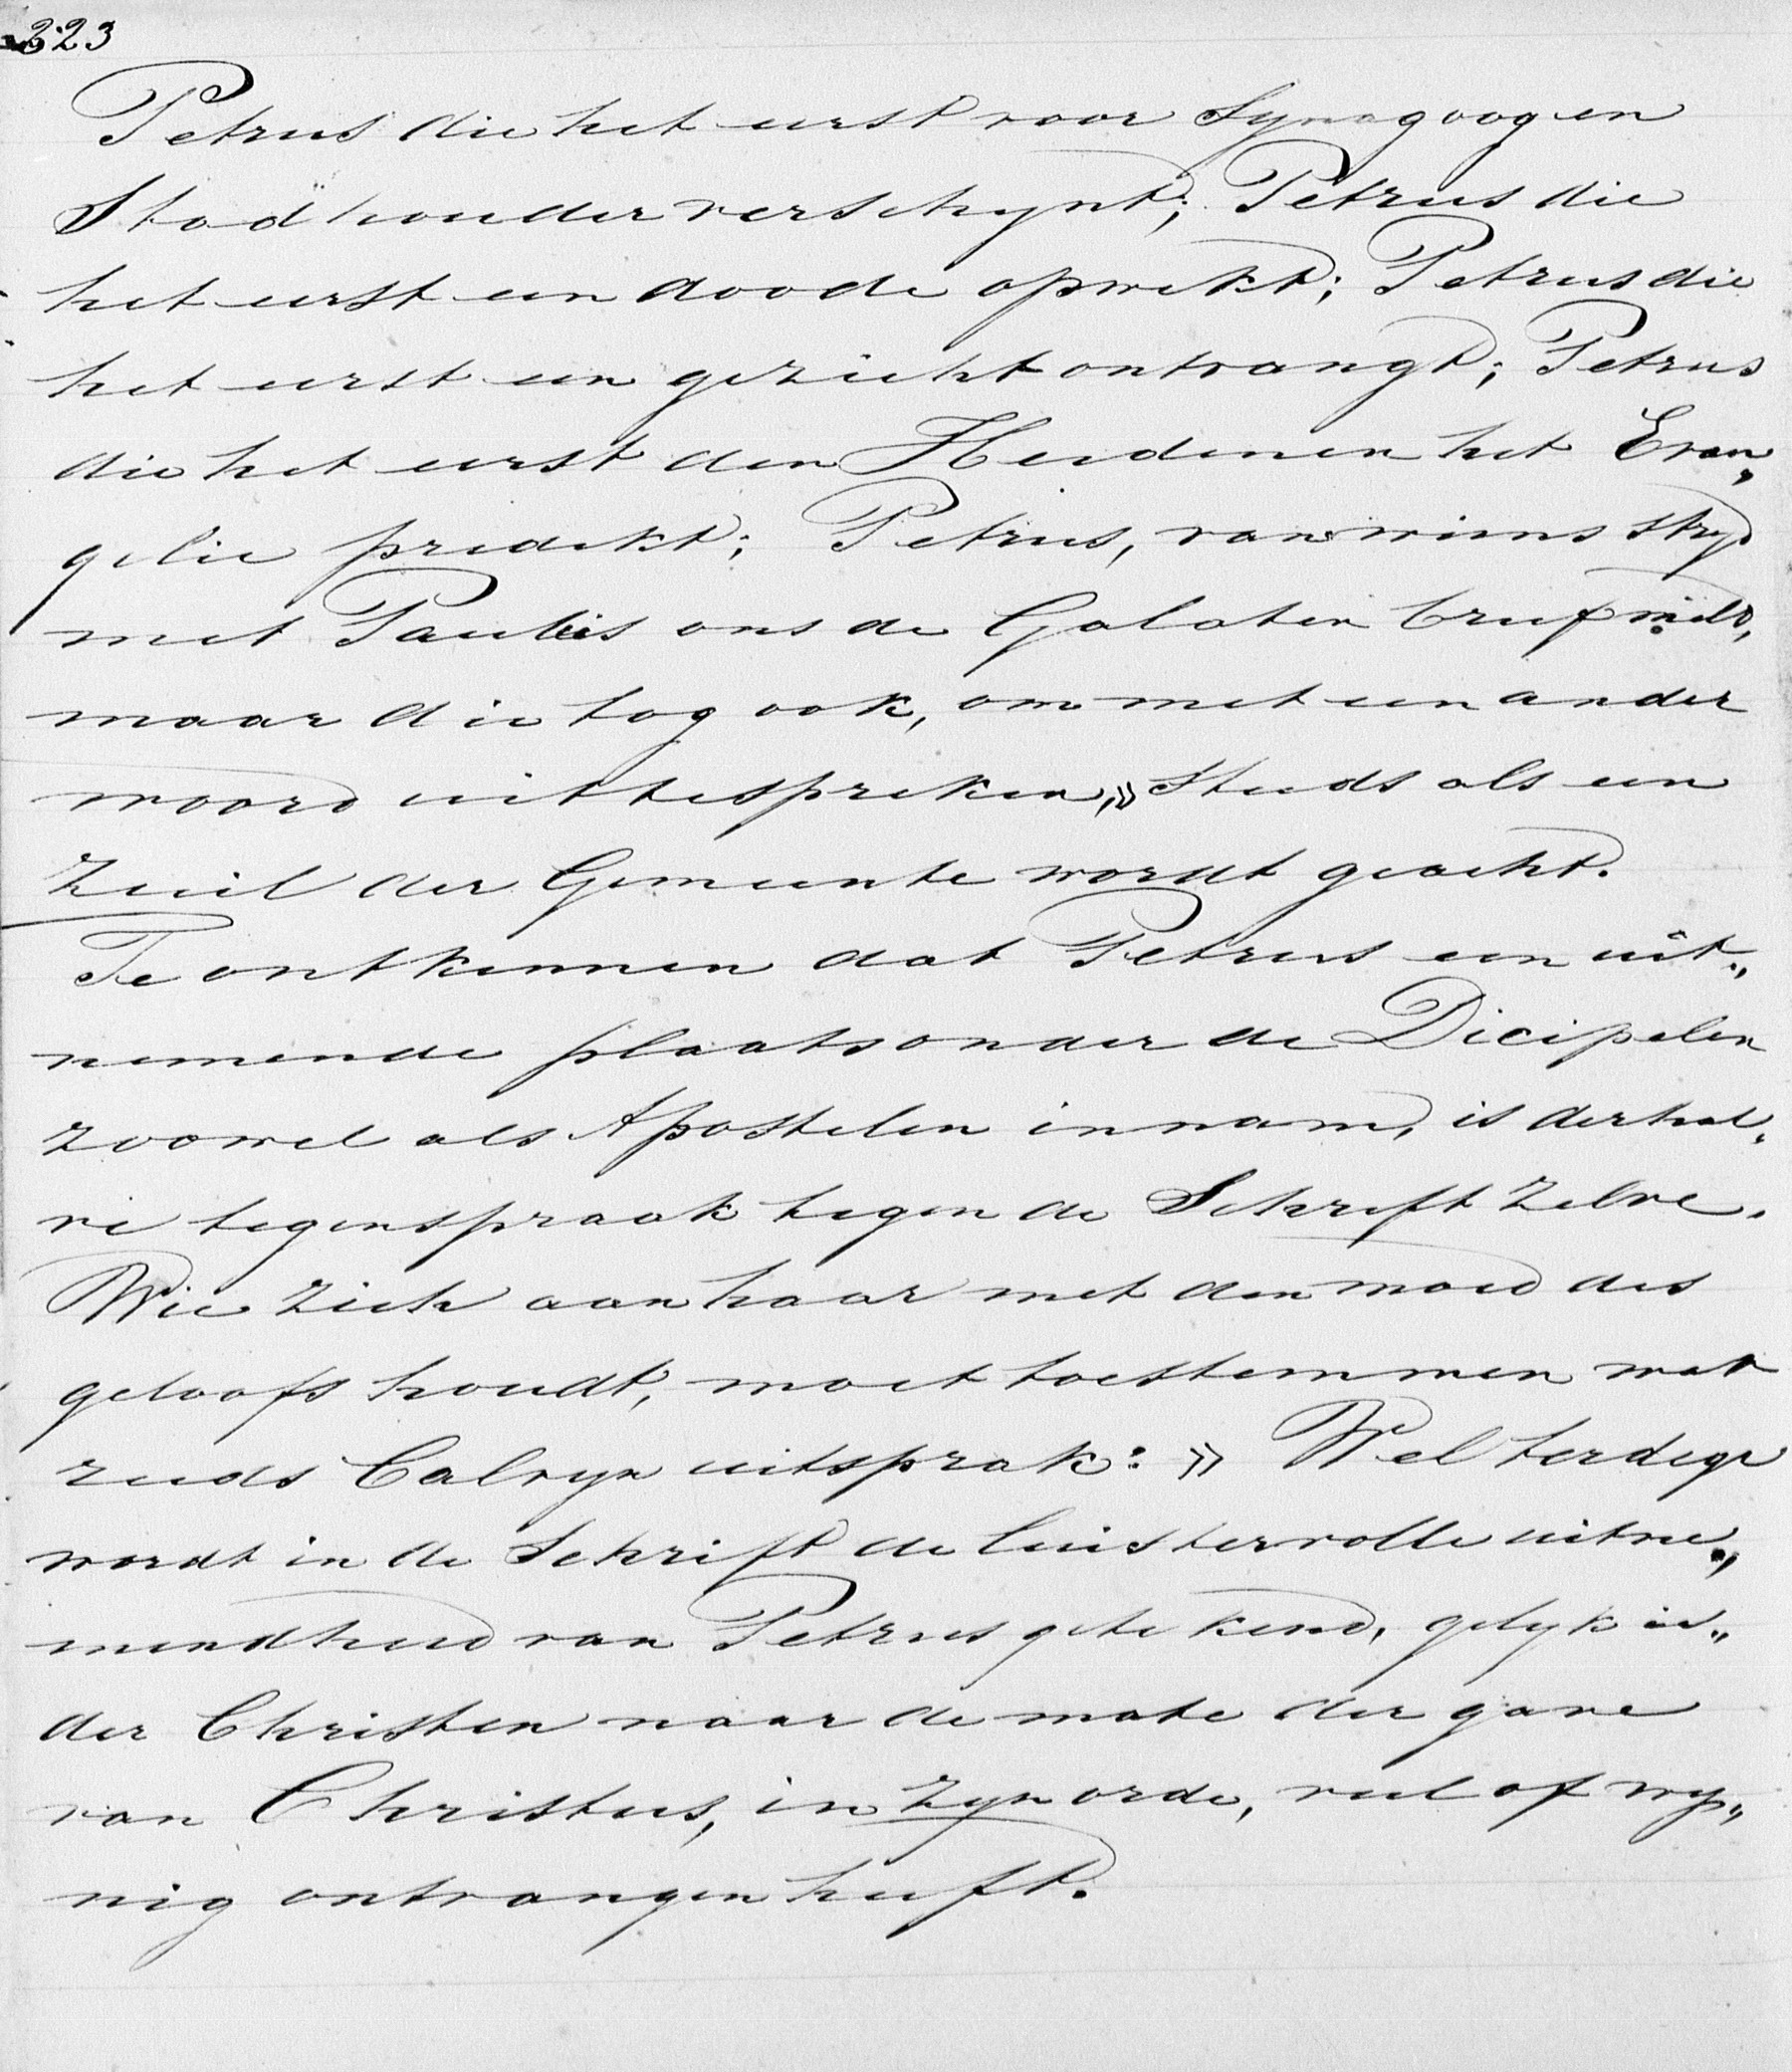 323
Petrus die het eerst voor Synagoog en
Stadhouder verschynt; Petrus die
het eerst een doode opwekt; Petrus die
het eerst een gezicht ontvangt; Petrus
die het eerst den Heidenen het Evan„
gelie predekt; Petrus, van wiens stryd
met Paulus ons de Galaten brief meld,
maar die tog ook, om met een ander
woord uittespreken, » Steeds als een
Zuil der Gemeente wordt geacht.
Te ontkennen dat Petrus een uit„
nemende plaats onder de Dicipelen
zoowel als Apostelen innam, is derhal„
ve tegenspraak tegen de Schrift Zelve.
Wie Zich aan haar met den moed des
geloofs houdt, moet toestemmen wat
reeds Calvyn uitsprak: » Wel terdege
wordt in de Schrift de luistervolle uitne„
mendheid van Petrus getekend, gelyk ie„
der Christen naar de mate der gave
van Christus, in Zyn orde, veel of wy„
nig ontvangen heeft.